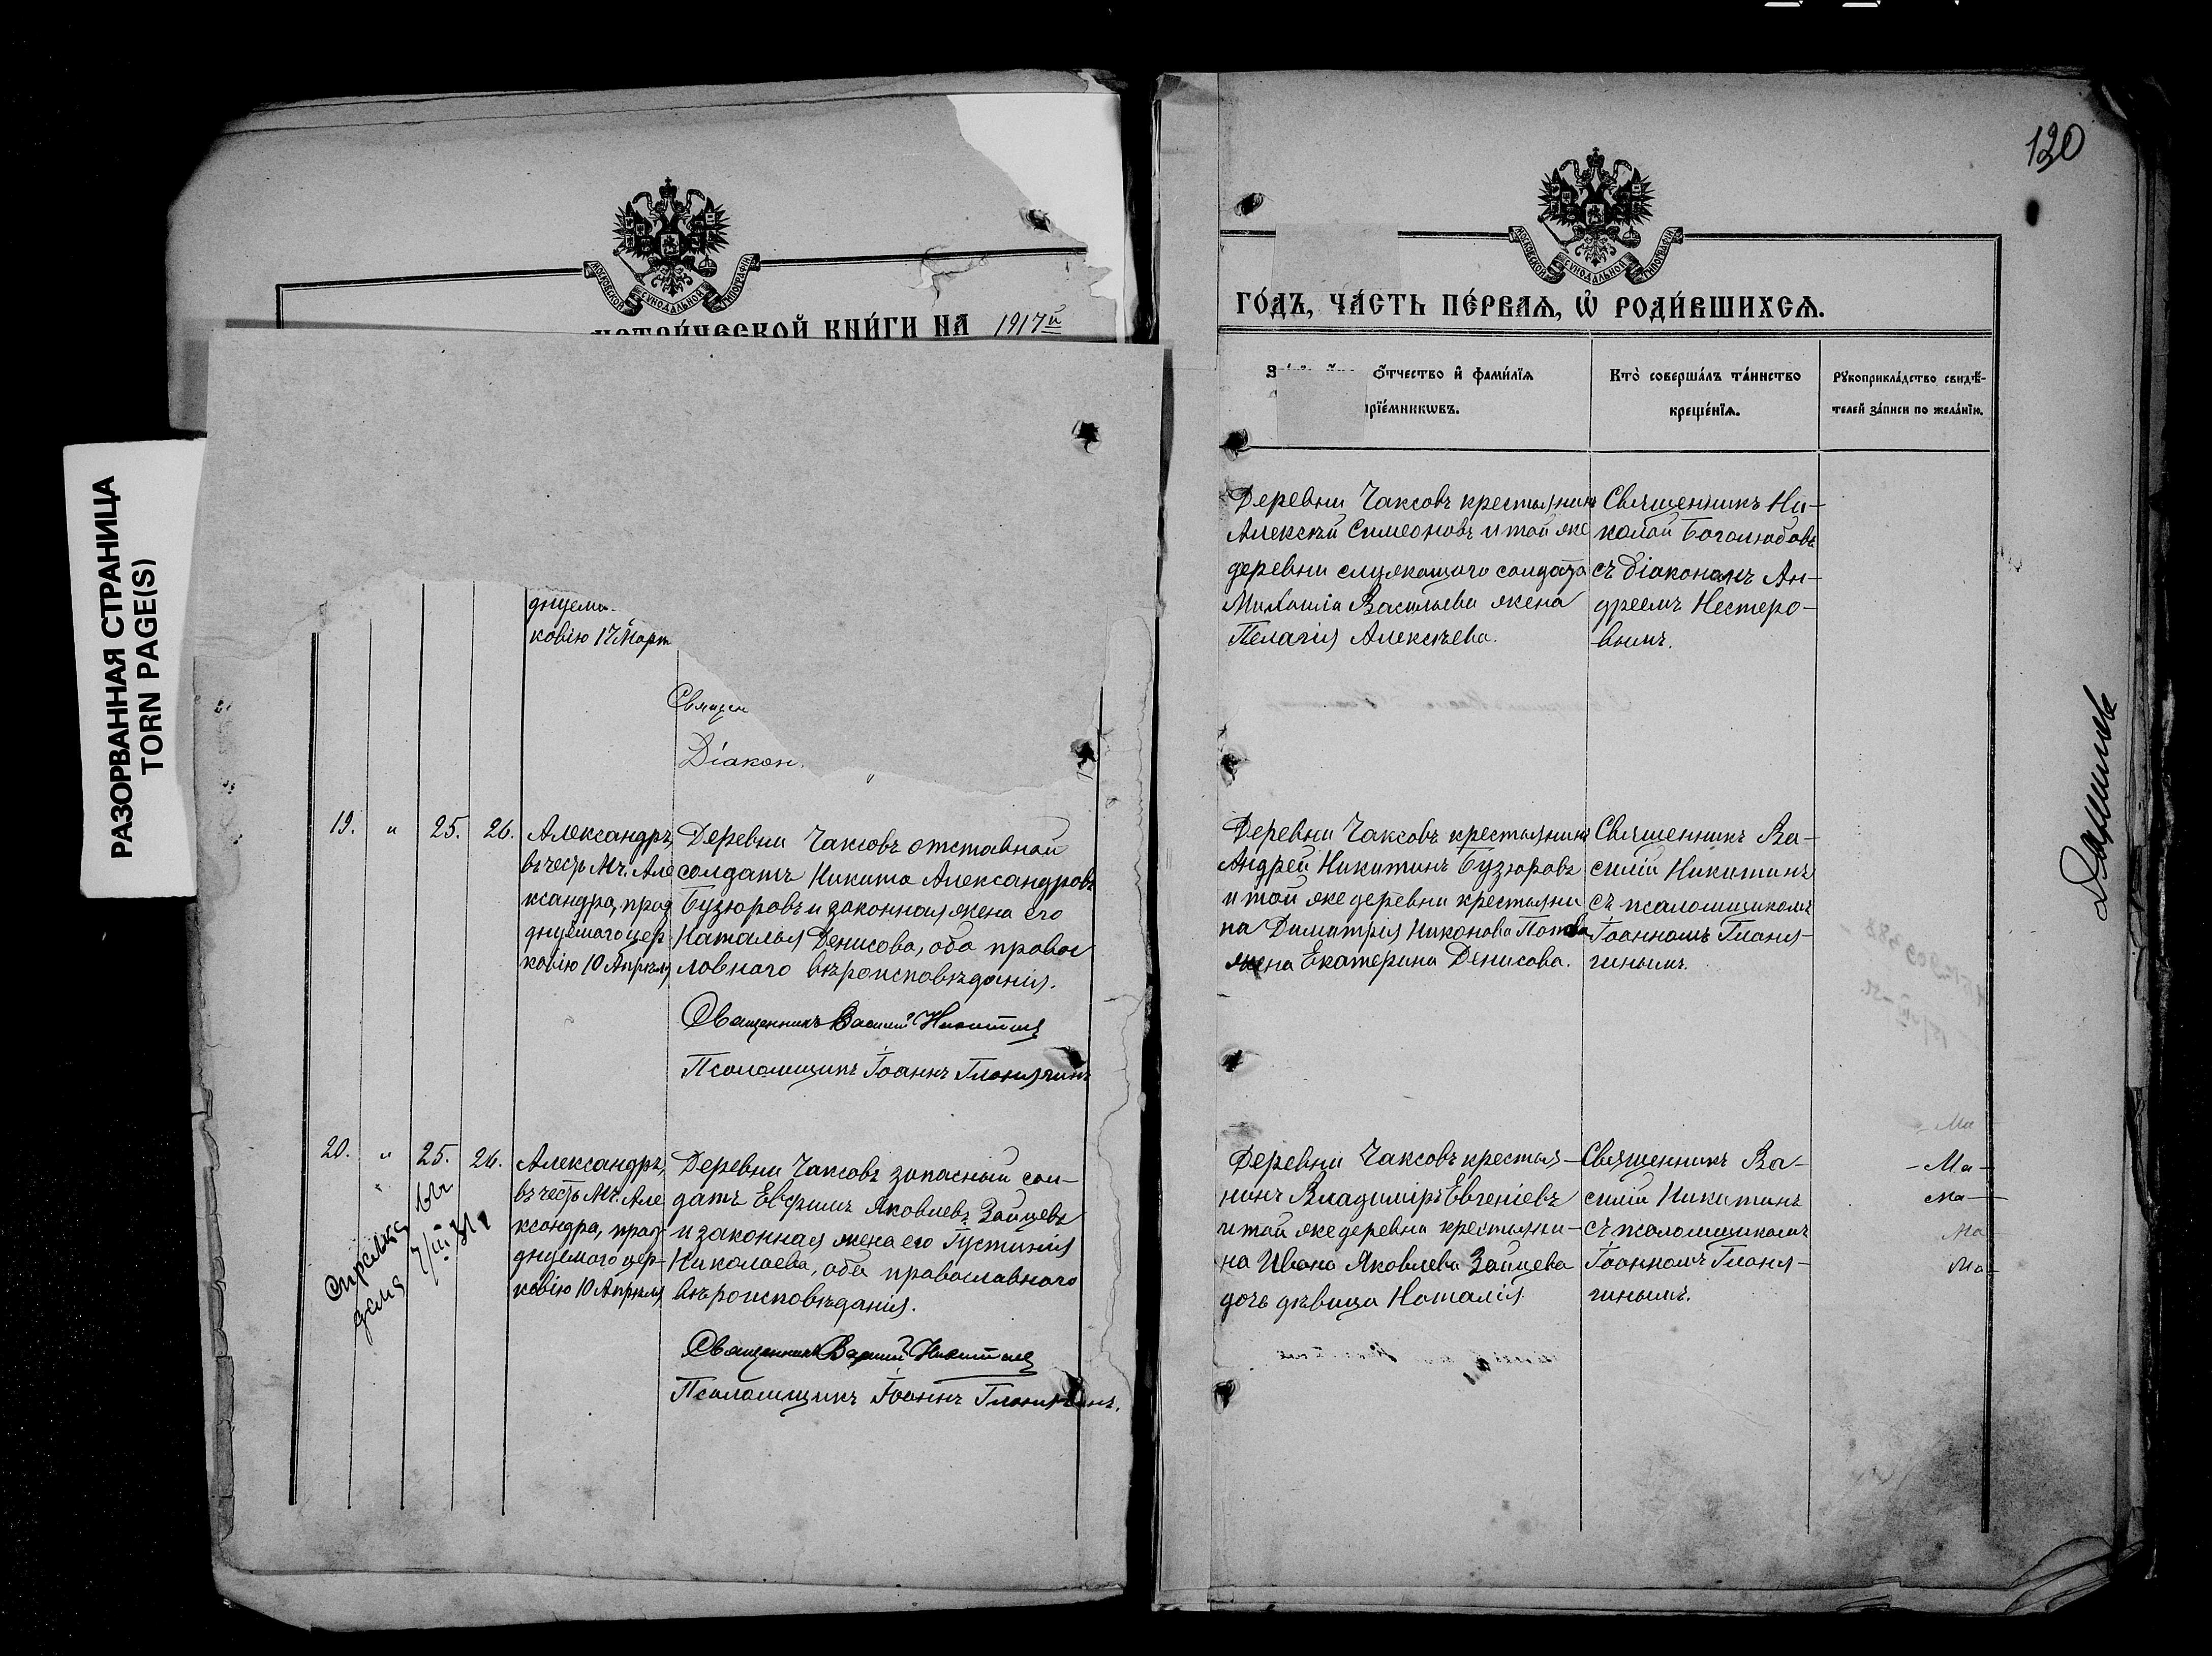 РАЗОРВАННАЯ СТРАНИЦА
TORN PAGE(S)
МОСКОВСКОЙ СУНОДАЛЬНОЙ ТИПОГРАФІИ
КНИ́ГИ НА 1917й
днуема-
ковію 17 Март
Священ
Діакон
19. " 25. 26.
Александръ,
въ честь Мч. Але
ксандра, праз
днуемаго цер
ковію 10 Апрѣля
Деревни Чаксовъ отставной
солдатъ Никита Александровъ
Бузюровъ и законная жена его
Наталья Денисова, оба правос
лавнаго вѣроисповѣданія.
Священникъ Василій Никитинъ
Псаломщикъ Іоаннъ
20. " 25. 26.
Александръ,
въ честь Мч. Але
ксандра, праз
днуемаго цер-
ковію 10 Апрѣля
Деревни Чаксовъ запасный сол-
датъ Евфимъ Яковлевъ Зайцевъ
и законная жена его Іустинія
Николаева, оба православнаго
вѣроисповѣданія.
Священникъ Василій Никитинъ
Псаломщикъ Іоаннъ
Справка
дана
120
МОСКОВСКОЙ СУНОДАЛЬНОЙ ТИПОГРАФІИ
ГО́ДЪ, ЧА́СТЬ ПЕ́РВАѦ, Ѽ РОДИ́ВШИХСѦ.
Ѻ҆́тчество и҆ фами́лїѧ
прїе́мникѡвъ.
Кто̀ соверша́лъ та́инство
креще́нїѧ.
Рꙋкоприкла́дство свидѣ́-
телей за́писи по жела́нїю.
Деревни Чаксовъ крестьянинъ
Алексѣй Симеоновъ и той же
деревни служащаго солдата
Михаила Васильева жена
Пелагія Алексѣева.
Священникъ Ни-
колай Боголюбовъ
съ діакономъ Ан-
дреемъ Нестеро-
вымъ.
Деревни Чаксовъ крестьянинъ
Андрей Никитинъ Бузюровъ
и той же деревни крестьяни
на Димитрія Никонова
жена Екатерина Денисова.
Священникъ Ва-
силій Никитинъ
съ псаломщикомъ
Іоанномъ
Деревни Чаксовъ крестья-
нинъ Владиміръ Евгеніевъ
и той же деревни крестьяни-
на Ивана Яковлева Зайцева
дочь дѣвица Наталія
Священникъ Ва-
силій Никитинъ
съ псаломщикомъ
Іоанномъ